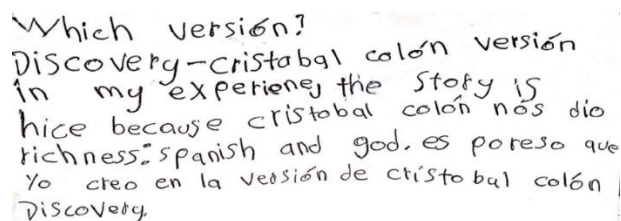 Which versión?
Discovery-cristabal colón versión
in my experieney the story is
hice because cristobal colón nos dio
richness: spanish and god. es poreso que
Yo creo en la veosión de cristobal colón
Discovery.